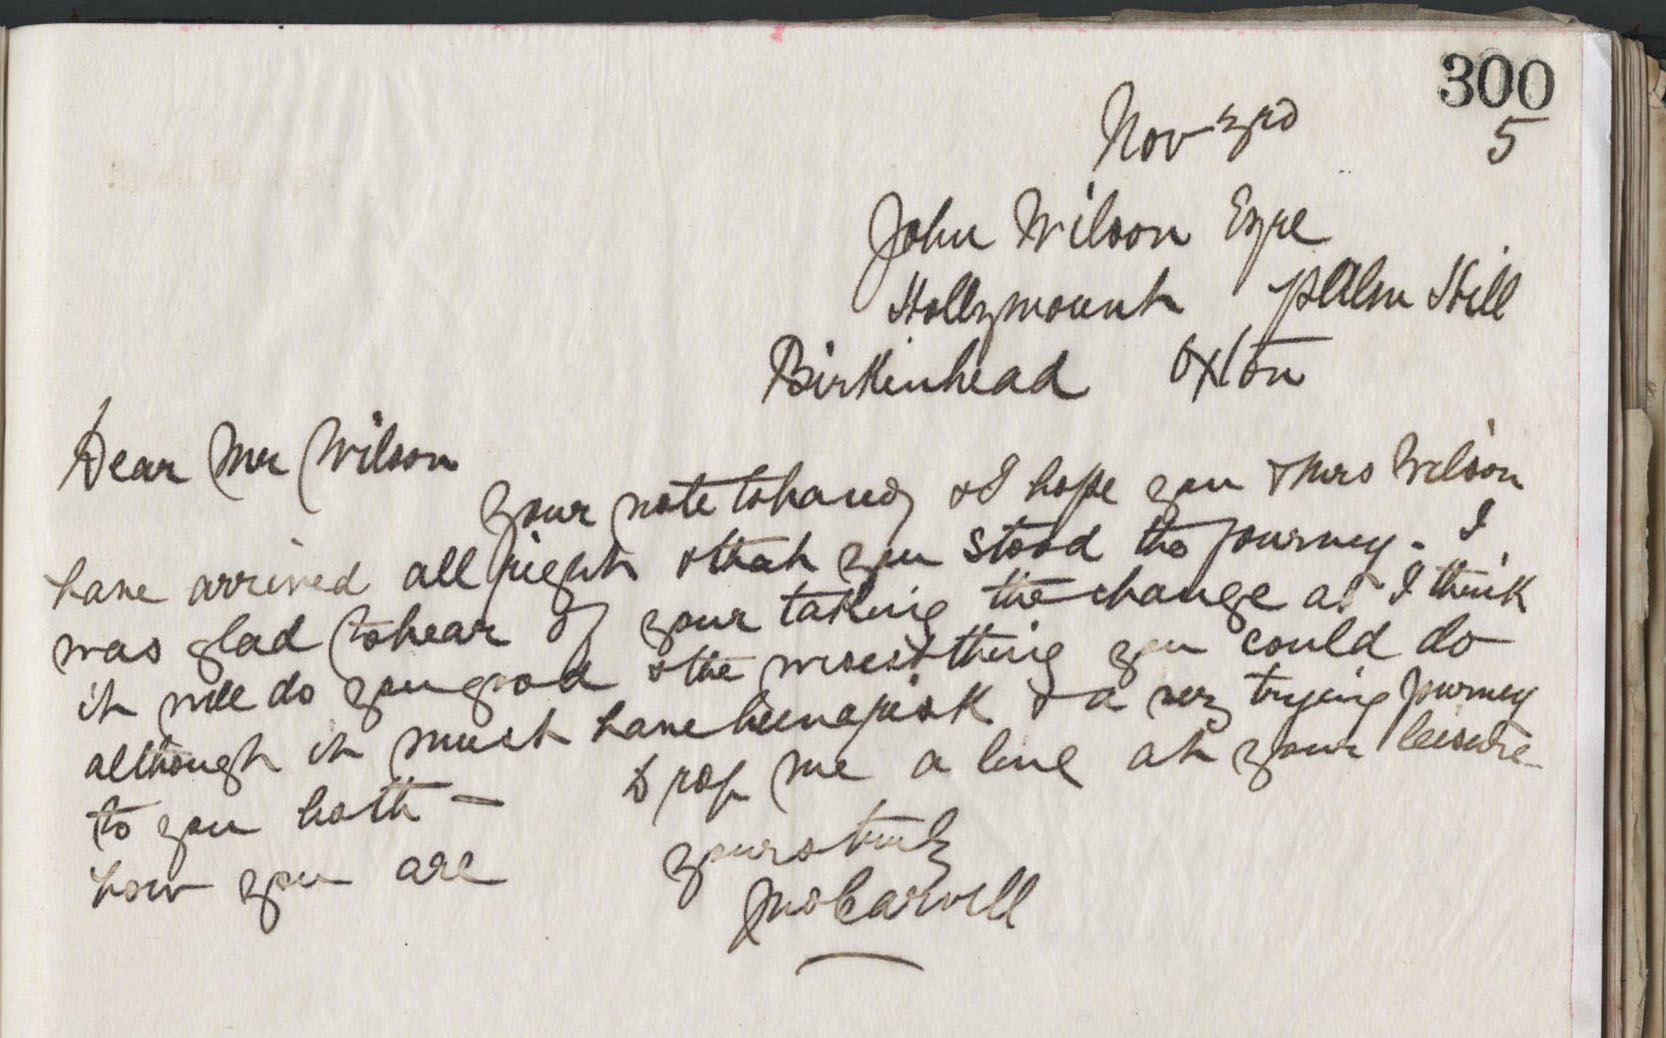 300
Nov 3rd 5
John Wilson Esqre
Hollymount Palm Hill
Birkinhead Oxton
Dear Mr Wilson
your note to hand & I hope you & Mrs Wilson
have arrived all right & that you stood the journey. I
was glad to hear of your taking the change as I think
it will do you good & the wisest thing you could do
although it must have been a risk & a very trying journey
to you both — Drop me a line at your leisure
how you are
yours truly
Jno Carvell